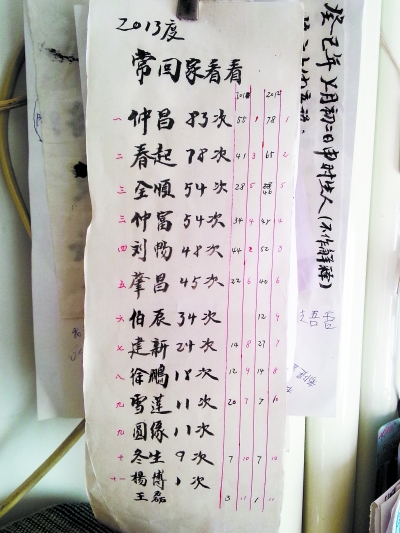 2013度
常回家看看
2011 2012
一 仲昌 83次 55 1 78 1
二 春起 78次 41 3 65 2
三 全順 54次 28 5 5
三 仲富 54次 34 4 48 4
四 刘畅 48次 44 2 52 3
五 肇昌 45次 22 6 40 6
六 伯辰 34次 12 9
七 建新 24次 14 8 27 7
八 徐鹏 18次 12 9 14 8
九 雪莲 11次 20 7 7 10
九 圆缘 11次
十 冬生 9次 7 10 7 10
十一 楊博 1次
王磊 3 11 1 11
癸己年 月初二日申时生人(不作解释)